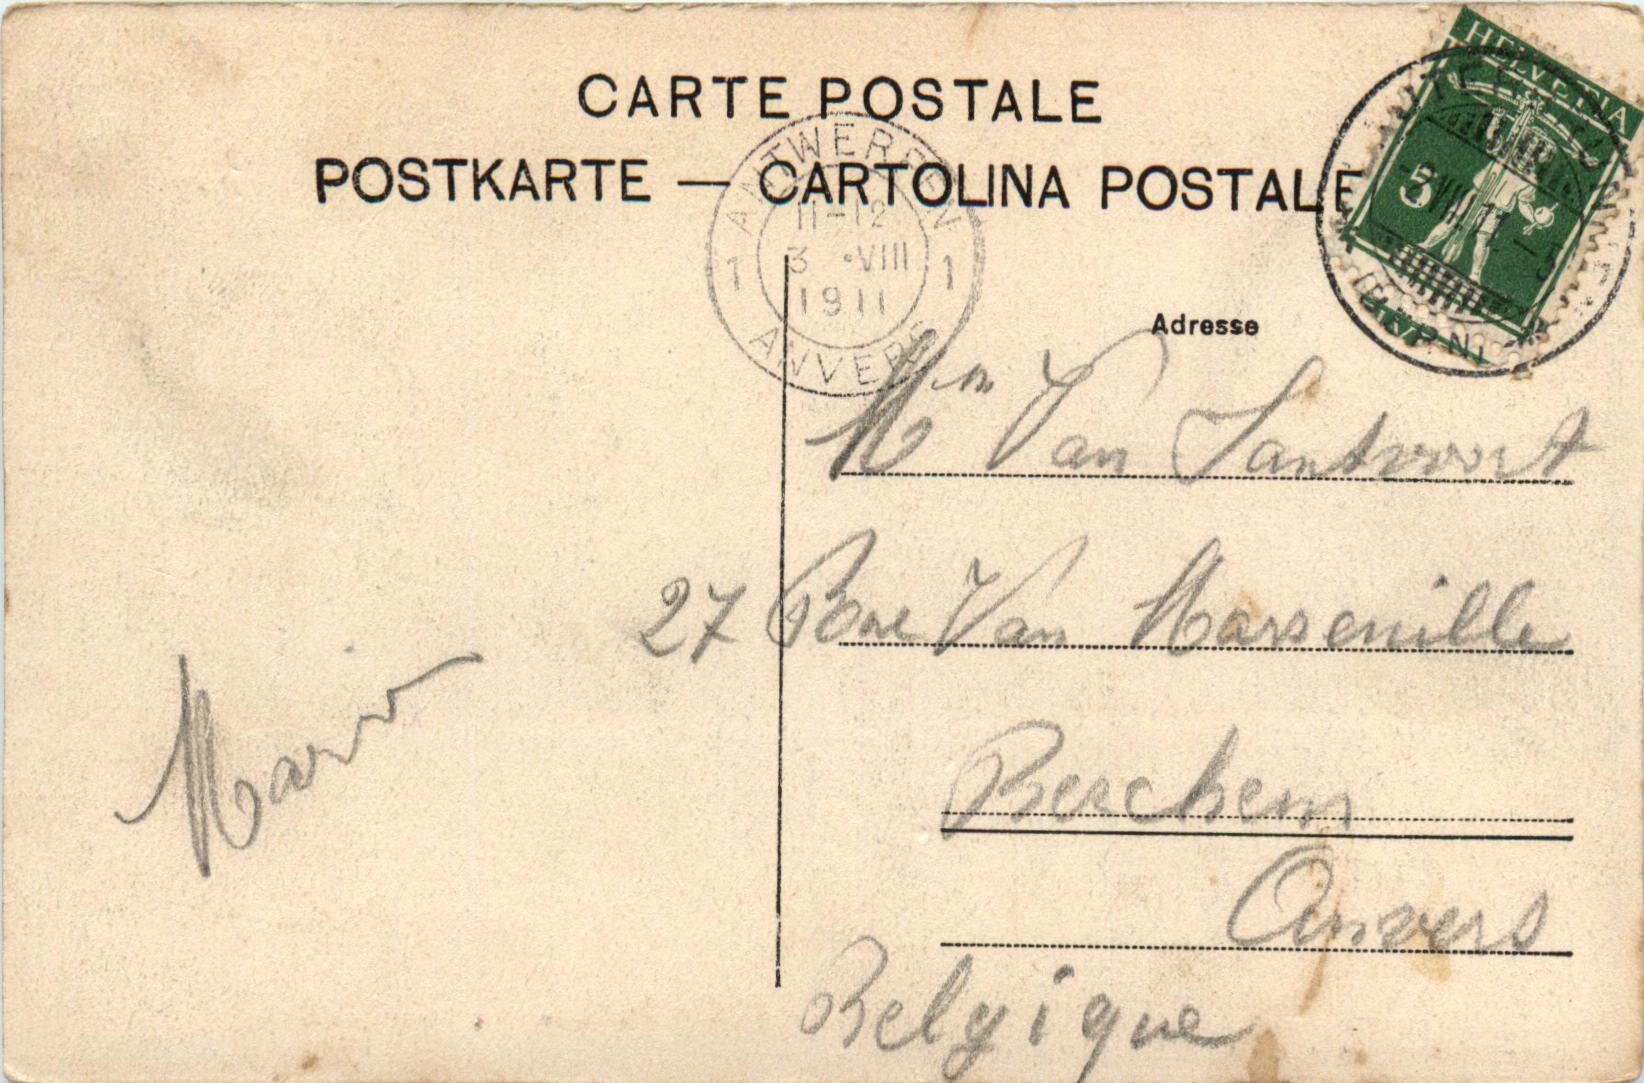 CARTE POSTALE
POSTKARTE — CARTOLINA POSTALE
HELVETIA
5
-2.VIII.11.-5
ANTWERPEN
11-12
1 3 ·VIII 1
1911
ANVERS
Adresse
Van Santvoort
27 Rue Van
Berchem
Anvers
Belgique